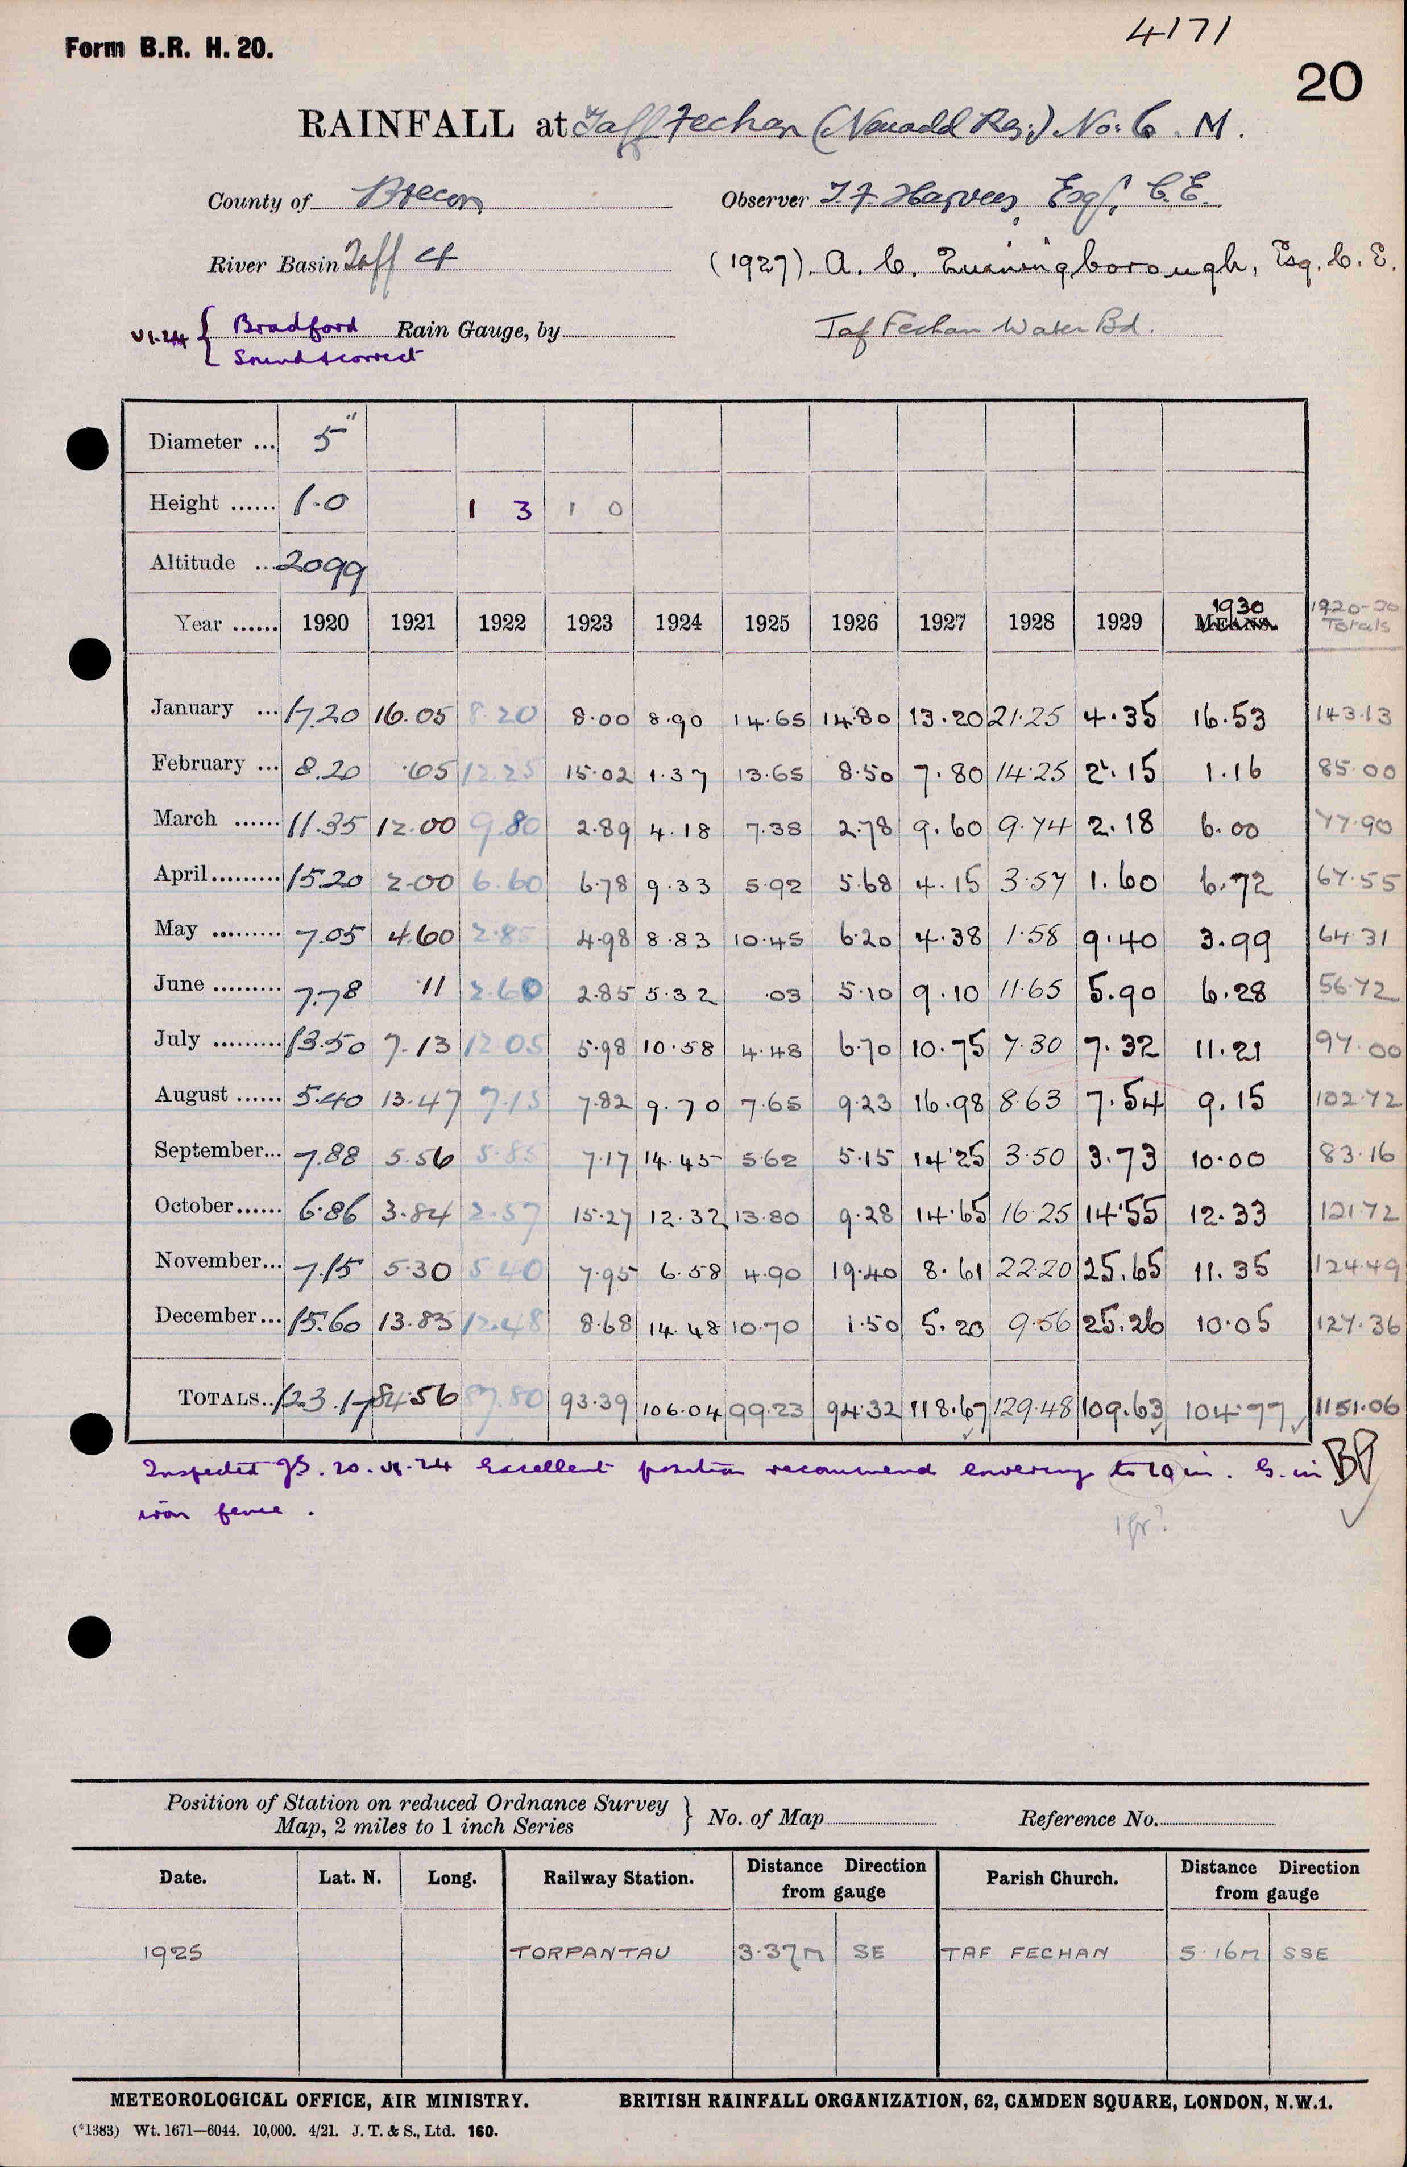 4171
Form B.R. H. 20.
20
RAINFALL at Taff Fechan (Neuadd Res:) No: 6. M.
County of Brecon Observer T. F. Harvey, Esq., C.E.
River Basin Taff 4 (1927) A. C. Esq. C. E.
VI.24 { Bradford Rain Gauge, by Taf Fechan Water Bd.
Sound & correct
Diameter ... 5"
Height ...... 1.0 1 3 1 0
Altitude ... 2099
Year ...... 1920 1921 1922 1923 1924 1925 1926 1927 1928 1929 1930 MEANS. 1920-30 Totals
January ... 17.20 16.05 8.20 8.00 8.90 14.65 14.80 13.20 21.25 4.35 16.53 143.13
February ... 8.20 .65 12.25 15.02 1.37 13.65 8.50 7.80 14.25 2.15 1.16 85.00
March ...... 11.35 12.00 9.80 2.89 4.18 7.38 2.78 9.60 9.74 2.18 6.00 77.90
April......... 15.20 2.00 6.60 6.78 9.33 5.92 5.68 4.15 3.57 1.60 6.72 67.55
May ......... 7.05 4.60 2.85 4.98 8.83 10.45 6.20 4.38 1.58 9.40 3.99 64.31
June ......... 7.78 .11 2.60 2.85 5.32 .03 5.10 9.10 11.65 5.90 6.28 56.72
July ......... 13.50 7.13 12.05 5.98 10.58 4.48 6.70 10.75 7.30 7.32 11.21 97.00
August ...... 5.40 13.47 7.15 7.82 9.70 7.65 9.23 16.98 8.63 7.54 9.15 102.72
September... 7.88 5.56 5.85 7.17 14.45 5.62 5.15 14.25 3.50 3.73 10.00 83.16
October...... 6.86 3.84 2.57 15.27 12.32 13.80 9.28 14.65 16.25 14.55 12.33 121.72
November... 7.15 5.30 5.40 7.95 6.58 4.90 19.40 8.61 22.20 25.65 11.35 124.49
December... 15.60 13.85 12.48 8.68 14.48 10.70 1.50 5.20 9.56 25.26 10.05 127.36
TOTALS.. 123.17 84.56 87.80 93.39 106.04 99.23 94.32 118.67 129.48 109.63 104.77 1151.06
Inspected JS. 20.VI.24 Excellent position recommend lowering to 10 in. G. in
iron fence.
1 ft?
Position of Station on reduced Ordnance Survey
Map, 2 miles to 1 inch Series } No. of Map Reference No.
Date. Lat. N. Long. Railway Station. Distance Direction from gauge Parish Church. Distance Direction from gauge
1925 TORPANTAU 3.37m SE TAF FECHAN 5.16m SSE
METEOROLOGICAL OFFICE, AIR MINISTRY. BRITISH RAINFALL ORGANIZATION, 62, CAMDEN SQUARE, LONDON, N.W.1.
(*1383) Wt. 1671—6044. 10,000. 4/21. J. T. & S., Ltd. 160.